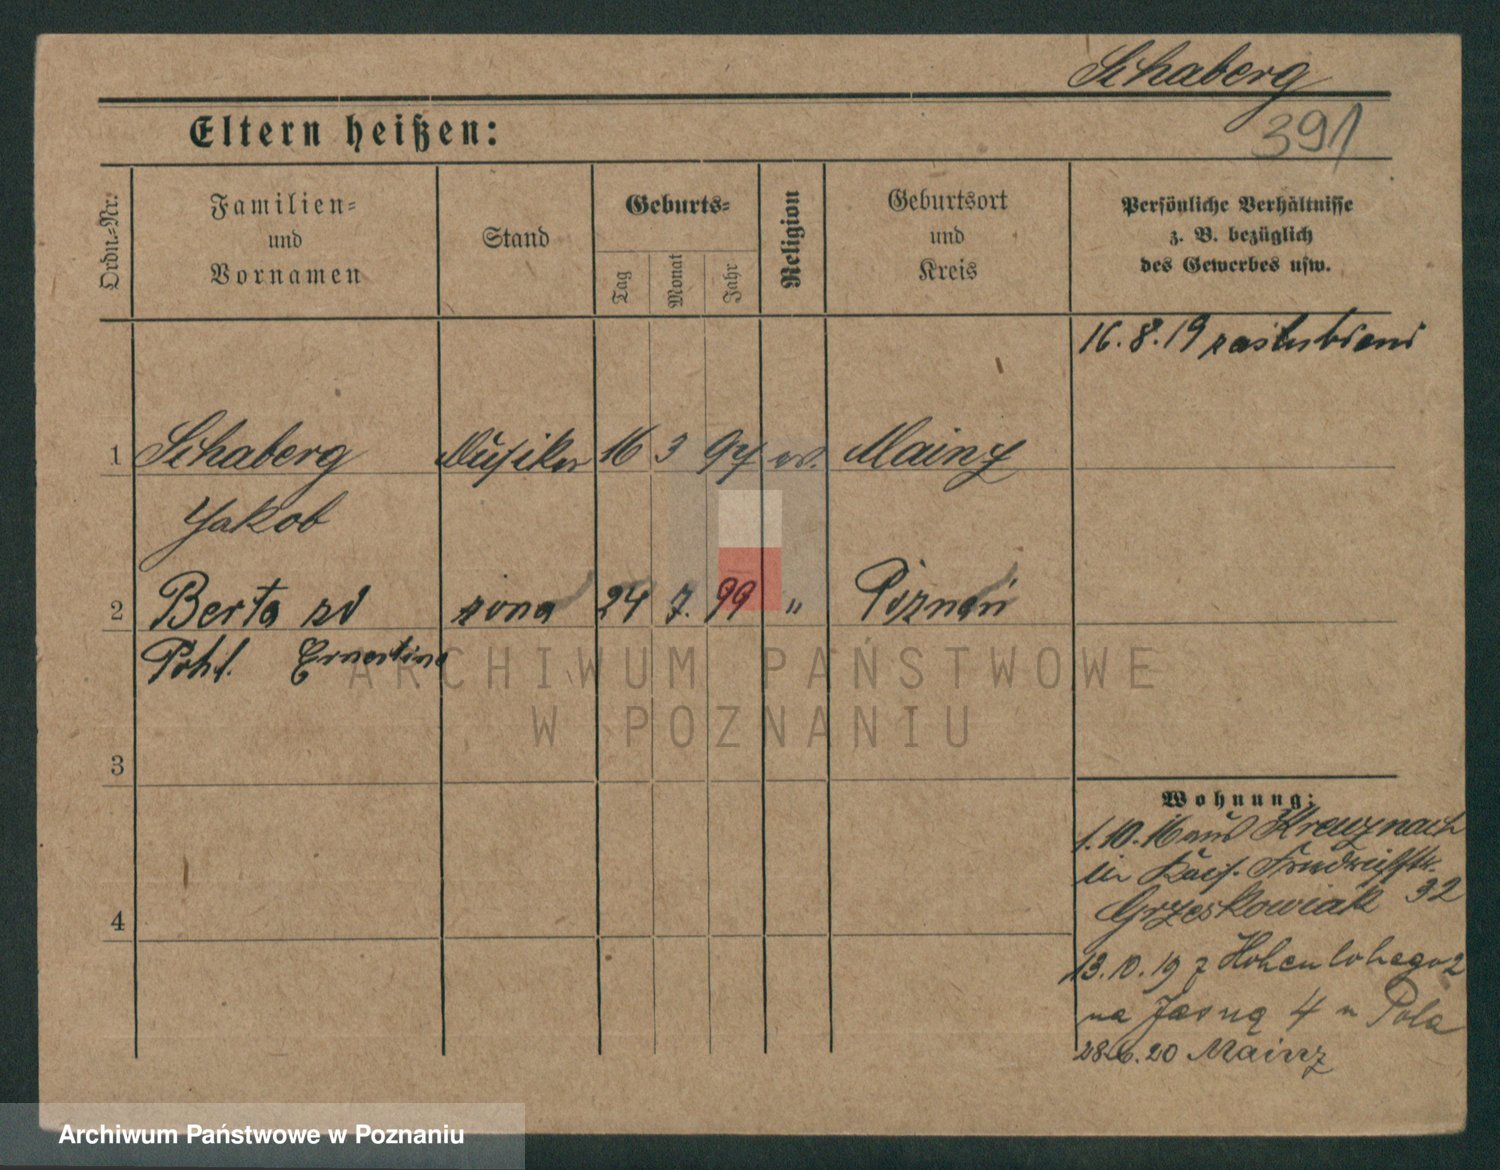 Schaberg
391
Eltern heißen:
Ordn.-Nr:
Familien-
und
Vornamen
Stand
Geburts-
Tag
Monat
Jahr
Religion
Geburtsort
und
Kreis
Persönliche Verhältnisse
z. B. bezüglich
des Gewerbes usw.
16. 8. 19 zaślubieni
1 Schaberg Musiker 16 3 97 ev. Mainz
Jakob
2 Berta zd żona 24 7. 99 " Poznań
Pohl. Ernestine
3
4
Wohnung:
1. 10. 16 aus Kreuznach
Grzeskowiak 32
13. 10. 19 z Hohenlohego 2
na Jasną 4 u Pola
28. 6. 20 Mainz
ARCHIWUM PAŃSTWOWE
W POZNANIU
Archiwum Państwowe w Poznaniu